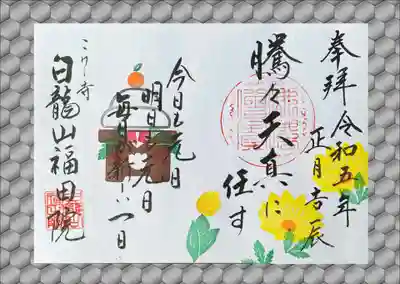 奉拝 令和五年
正月吉辰
騰々天真に
任す
今日も元旦
明日も元旦
毎日が新しい一日
こけ寺
白龍山福田院